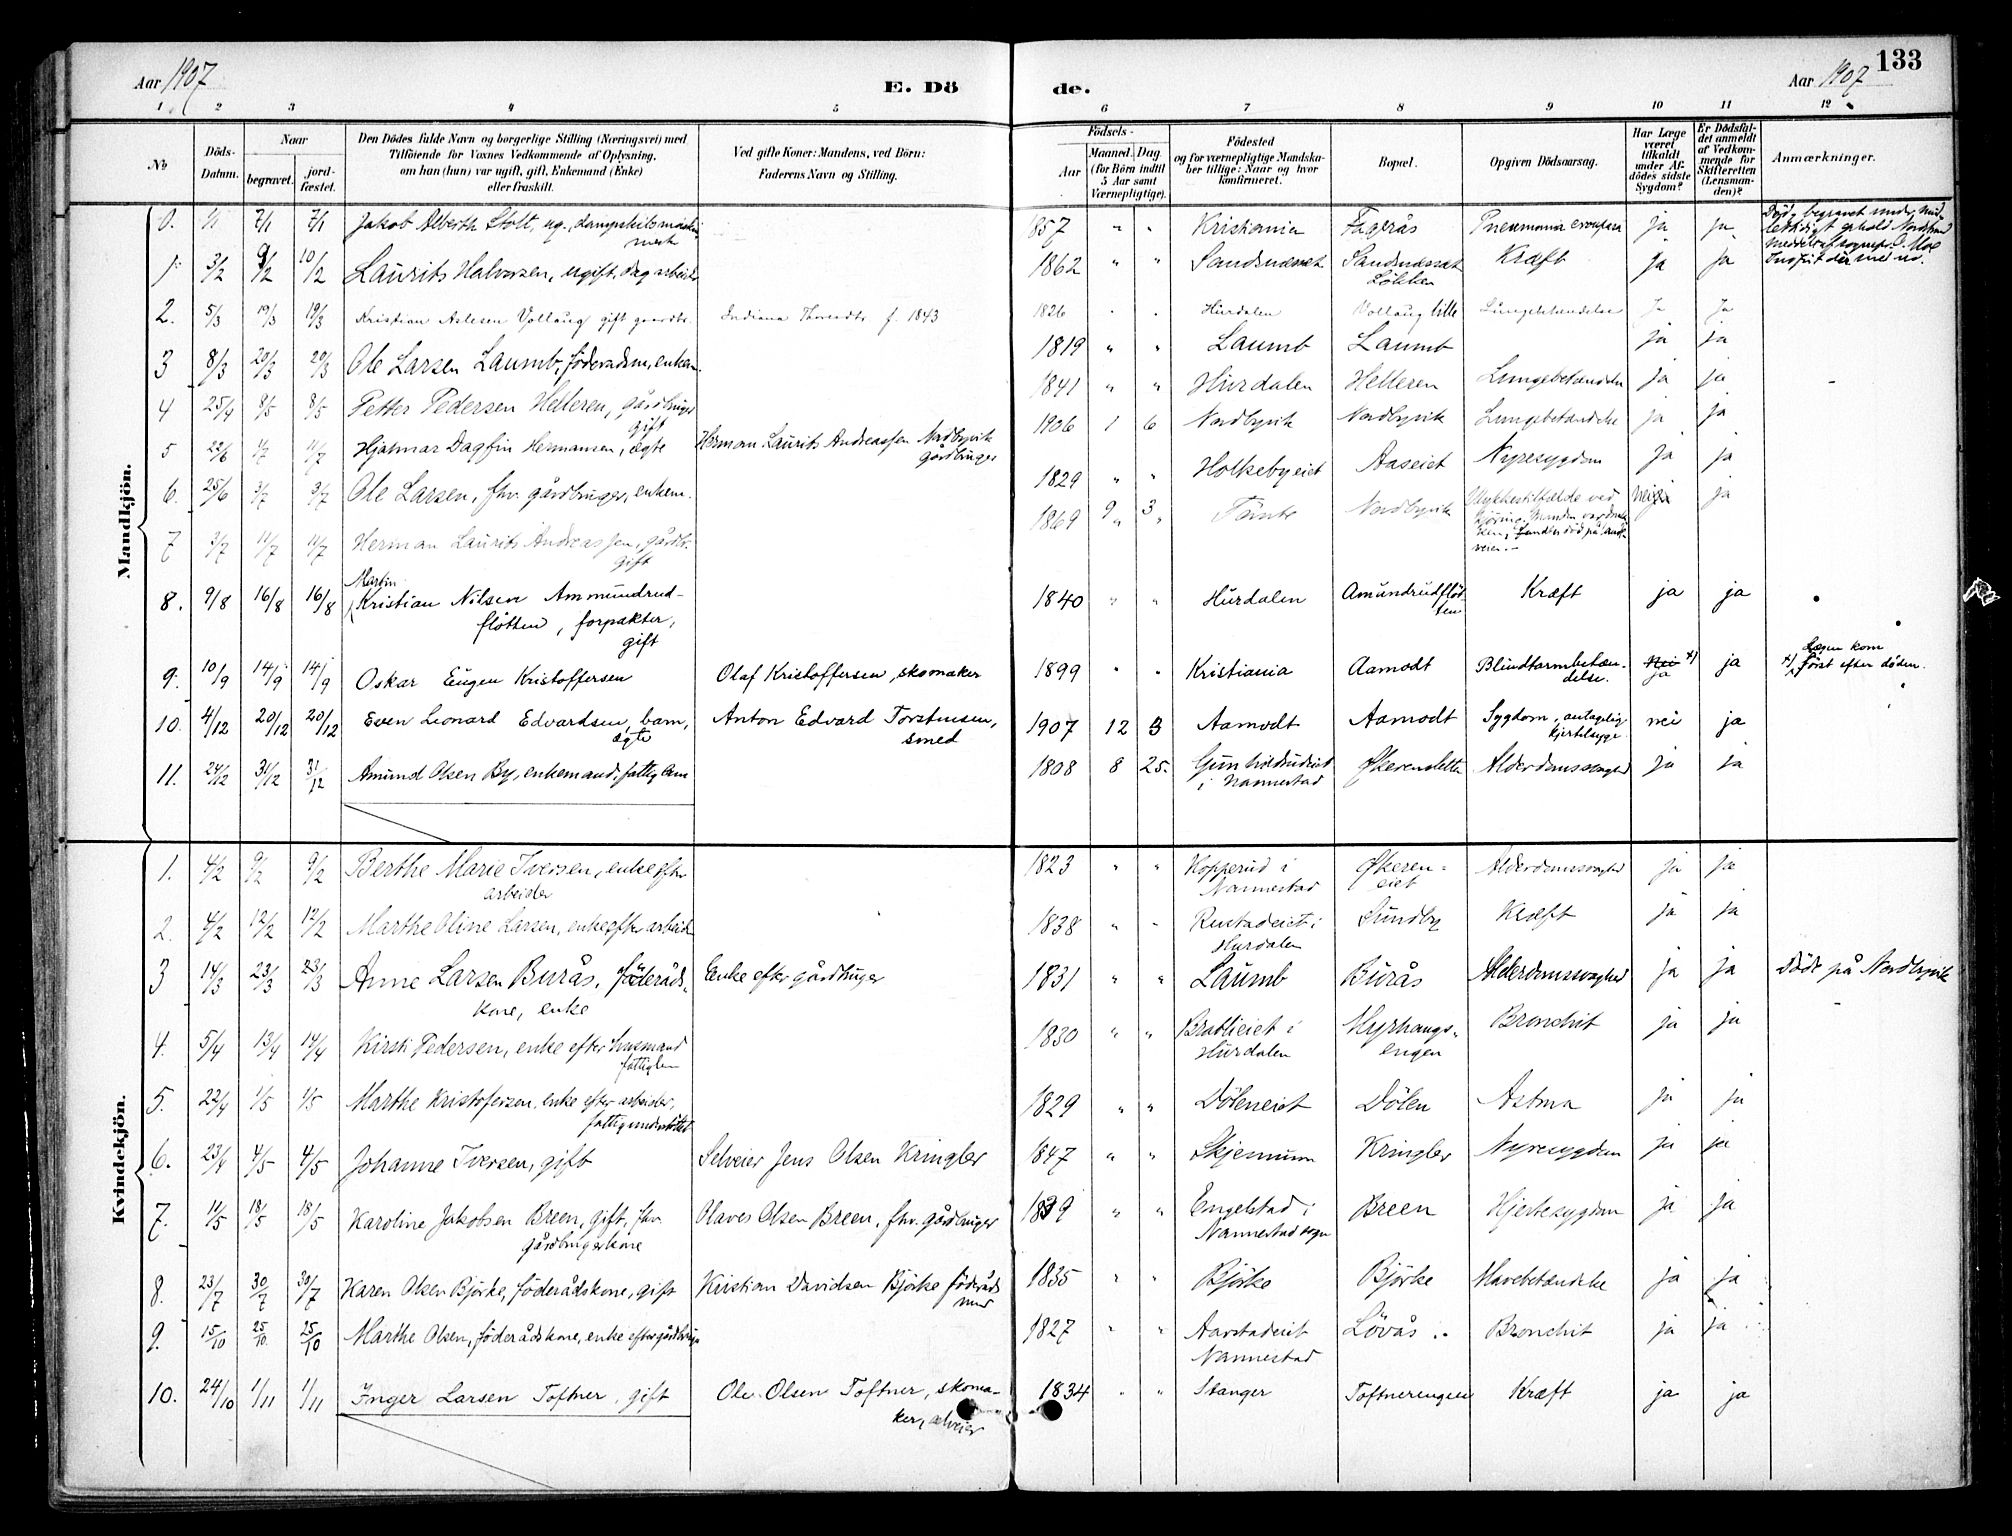 Aar 1907
E. Dö
de.
Aar 1907
133
1 2 3 4 5 6 7 8 9 10 11 12
No
Döds-Datum.
Naar
begravet.
jordfæstet.
Den Dödes fulde Navn og borgerlige Stilling (Næringsvei) med
Tilföiende for Voxnes Vedkommende af Oplysning,
om han (hun) var ugift, gift, Enkemand (Enke)
eller fraskilt.
Ved gifte Koner: Mandens, ved Börn:
Faderens Navn og Stilling.
Födsels-
Aar
Maaned. Dag
(for Börn indtil
5 Aar samt
Værnepligtige).
Födested
og for værnepligtige Mandska-
ber tillige: Naar og hvor
konfirmeret.
Bopæl.
Opgiven Dödsaarsag.
Har Læge
været
tilkaldt
under Af-
dödes sidste
Sygdom?
Er Dödsfal-
det anmeldt
af Vedkom-
mende for
Skifteretten
(Lensman-
den)?
Anmærkninger.
Mandkjön.
0. 1/1 7/1 7/1 Jakob Alberth Stolt, ug., 857 " " Kristiania Fagerås Pneumonia crouposa ja ja
1. 3/2 9/2 10/2 Laurits Halvorsen, ugift, dagarbeider 1862 " " Sandsnæsset Sandsnæsset Kræft ja ja
Løkken
2. 5/3 19/3 19/3 Kristian Aslesen Vollaug gift gaardbr. f. 1843 1826 " " Hurdalen Vollaug lille Lungebetændelse Ja Ja
3 8/3 20/3 20/3 Ole Larsen Laumb, föderådsm, enkem. 1819 " " Laumb Laumb ja ja
4 25/4 8/5 8/5 Petter Pedersen Helleren, gårdbruger 1841 " " Hurdalen Helleren Lungebetændelse ja ja
gift
5 22/6 1/7 11/7 Hjalmar Dagfin Hermansen, ægte Herman Laurits Andreassen Nordbyvik 1906 1 6 Nordbyvik Nordbyvik Lungebetændelse ja ja
gårdbruger
6. 25/6 3/7 3/7 Ole Larsen, fhv. gårdbruger, enkem. 1829 " " Holkebyeiet Aaseiet Nyresygdom ja ja
7 3/7 11/7 11/7 Herman Laurits Andreassen, gårdbr. 1869 9 3 Tømte Nordbyvik Ulykkestilfælde ved nei ja
gift
Kjøring. Manden var
fundet død på
veien.
Martin
8. 9/8 16/8 16/8 Kristian Nilsen Ammundrud- 1840 " " Hurdalen Amundrudflöt- Kræft ja ja
flötten, forpakter,
ten
gift
9. 10/9 14/9 14/9 Oskar Eugen Kristoffersen Olaf Kristoffersen, skomaker 1899 " " Kristiania Aamodt Blindtarmbetæn- Nei x) ja x) Lægen kom
delse. ja først efter døden.
10. 4/12 20/12 20/12 Even Leonard Edvardsen, barn, Anton Edvard Torstensen, 1907 12 3 Aamodt Aamodt Sygdom, antagelig nei ja
ægte smed kjertelsyge
11. 24/12 31/12 31/12 Amund Olsen By, enkemand, fattiglem 1808 8 25. Alderdomssvaghed ja ja
i Nannestad
Kvindekjön.
1. 4/2 9/2 9/2 Berthe Marie Iversen, enke efter 1823 " " Kopperud i Økeren- Alderdomssvaghed ja ja
arbeider Nannestad eiet
2. 4/2 12/2 12/2 Marthe Oline Larsen, enke efter arbeid. 1838 " " Rustadeiet i Sundby Kræft ja ja
Hurdalen
3 14/3 23/3 23/3 Anne Larsen Burås, föderåds- Enke efter gårdbruger 1831 " " Laumb Burås Alderdomssvaghed ja ja Död på Nordbyvik
kone, enke
4. 5/4 13/4 14/4 Kirsti Pedersen, enke efter husmand 1830 " " Bratlieiet i Myrhaugs- Bronchit ja ja
fattiglem Hurdalen engen
5. 22/4 1/5 1/5 Marthe Kristofersen, enke efter arbeider, 1829 " " Döleneiet Dölen Astma ja ja
fattigunderstöttet
6. 23/4 4/5 4/5 Johanne Iversen, gift Selveier Jens Olsen Kringler 1847 " " Skjennum Kringler Nyresygdom ja ja
7. 11/5 18/5 18/5 Karoline Jakobsen Breen, gift, fhv. Olaves Olsen Breen, fhv. gårdbruger 1839 " " Engelstad i Breen Hjertesygdom ja ja
gårdbrugerkone Nannestad sogn
8. 23/7 30/7 30/7 Karen Olsen Björke, föderådskone, gift Kristian Davidsen Björke föderåds 1835 " " Björke Björke Mavebetændelse ja ja
mand
9. 15/10 25/10 25/10 Marthe Olsen, föderådskone, enke efter gårdbruger 1827 " " Aarstadeiet Lövås Bronchit ja ja
Nannestad
10. 24/10 1/11 1/11 Inger Larsen Toftner, gift Ole Olsen Toftner, skoma- 1834 " " Stanger Toftnerengen Kræft ja ja
ker, selveier